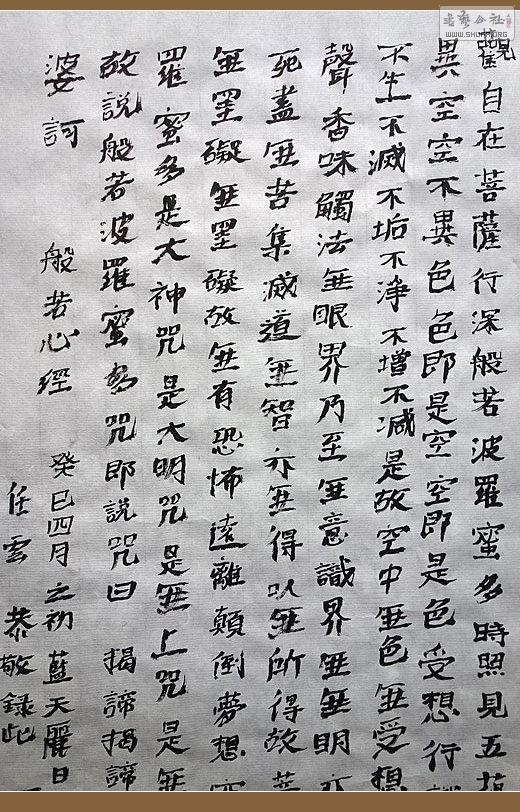 觀自在菩薩行深般若波羅蜜多時照見五
異空空不異色色即是空空即是色受想行
不生不滅不垢不淨不增不减是故空中無色無受想
聲香味觸法無眼界乃至無意識界無無明亦
死盡無苦集滅道無智亦無得以無所得故菩
無罣礙無罣礙故無有恐怖遠離顛倒夢想
羅蜜多是大神咒是大明咒是無上咒是無
故說般若波羅蜜多咒即說咒曰 揭諦揭諦
婆訶 般若心經 癸巳四月之初藍天麗日
任雲 恭敬録此
书艺公社
WWW.SHUFA.ORG